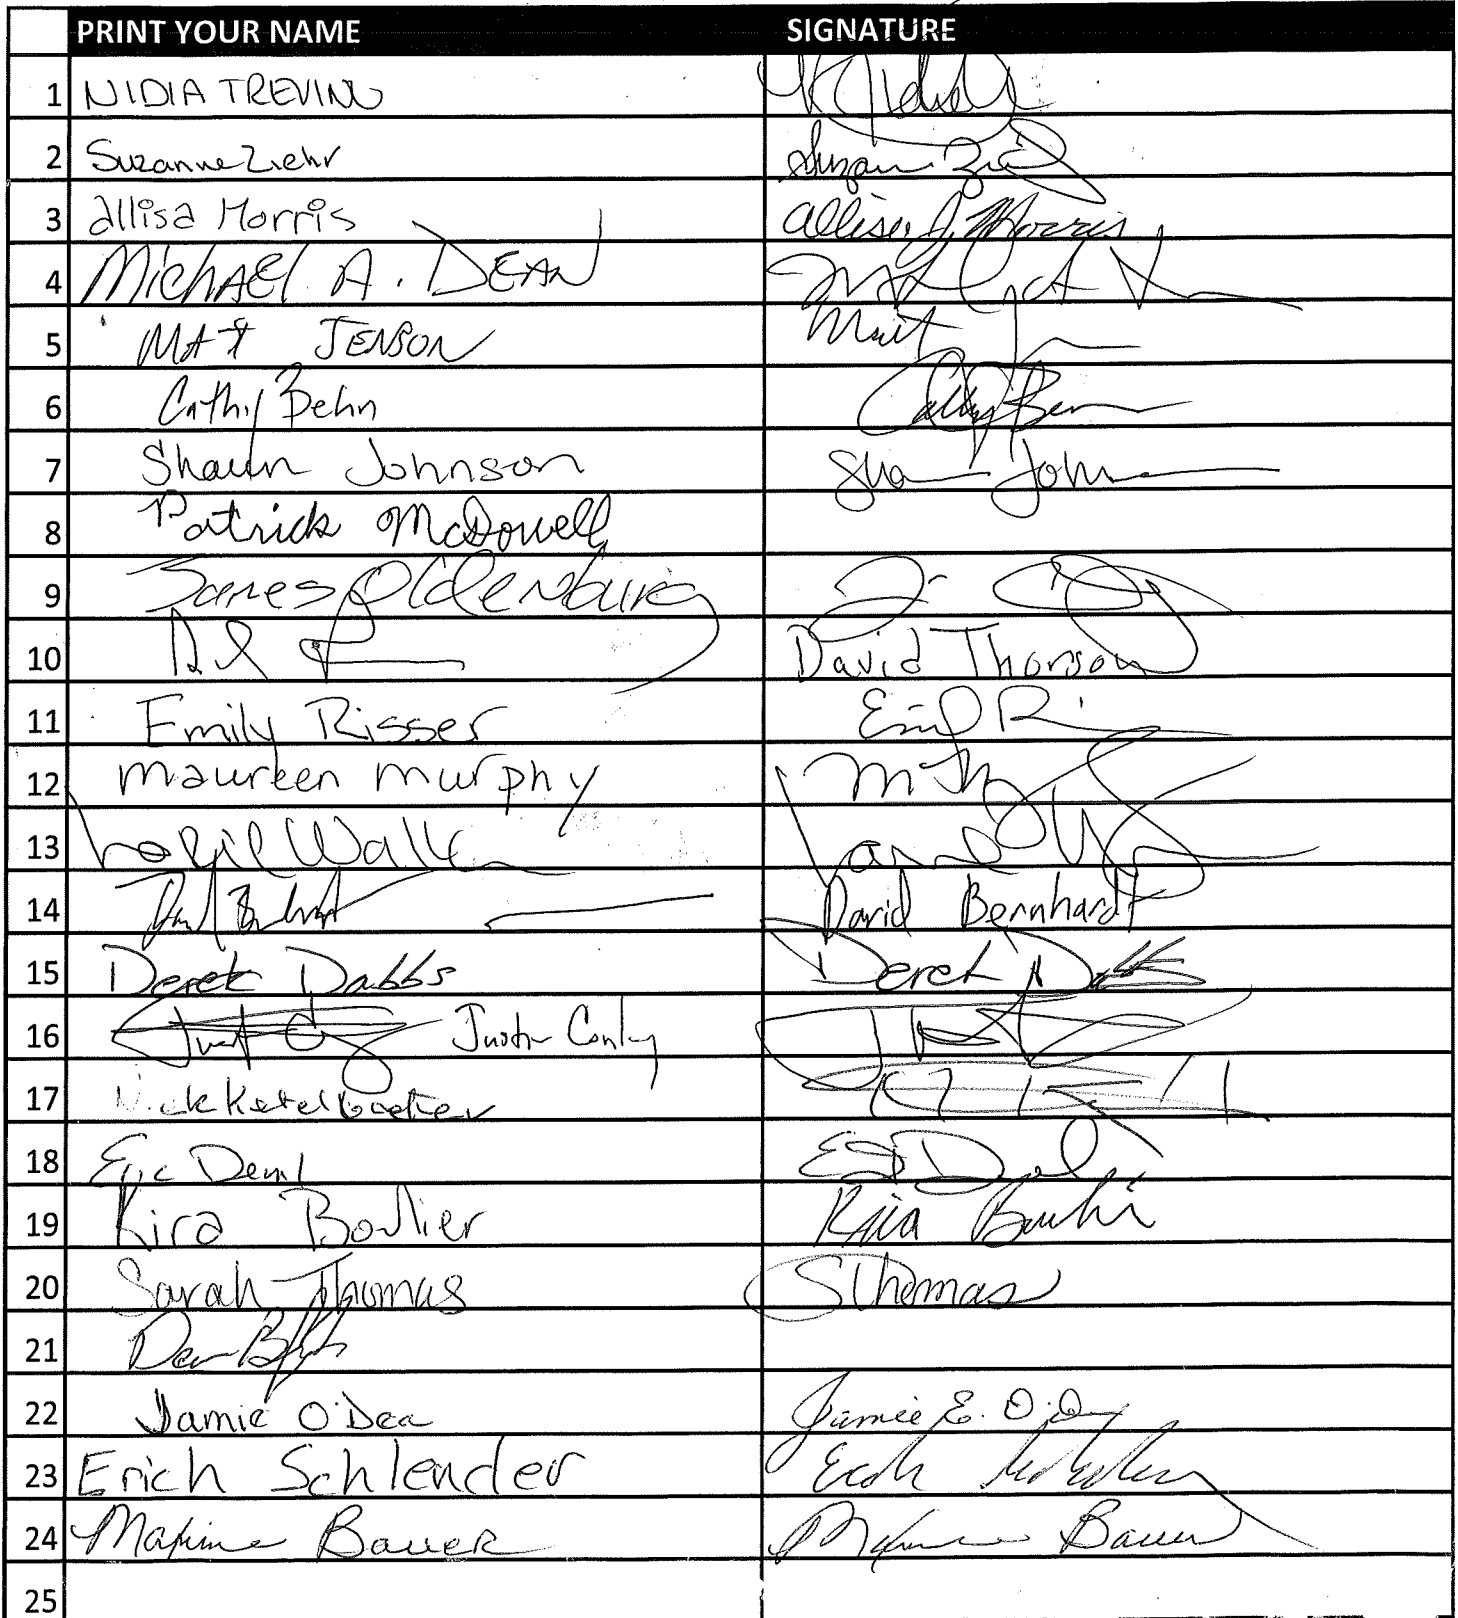 PRINT YOUR NAME SIGNATURE
1 NIDIA TREVINO
2 Suzanne Ziehr Suzanne
3 allisa Morris allisa J. Morris
4 MicHAEL A. DEAN
5 MAT JENSON Matt
6 Cathy Behn Cathy Behn
7 Shaun Johnson Shaun John
8 Patrick McDowell
9 James Oldenburg
10 David Thorson
11 Emily Risser Emily R
12 maureen murphy
13 Walk
14 David Bernhardt
15 Derek Dabbs Derek A Dabbs
16 Justin Conley
17 Nick Ketelboeter
18 Eric Deml
19 Kira Boulier Kira
20 Sarah Thomas SThomas
21
22 Jamie O'Dea Jamie E. O'Dea
23 Erich Schlender Erich Schlender
24 Maxine Bauer Maxine Bauer
25